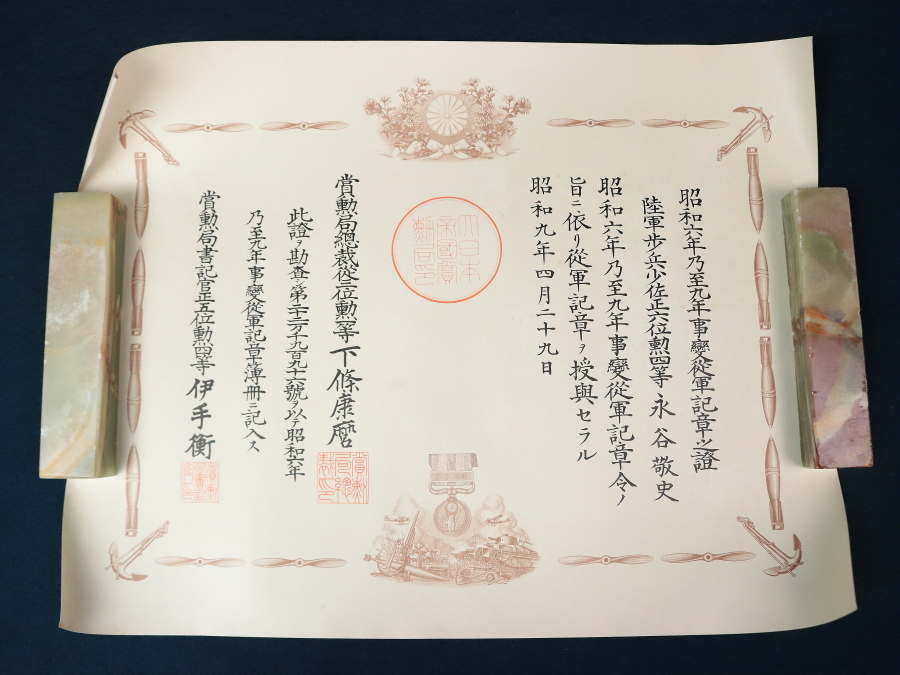 昭和六年乃至九年事變從軍記章之證
陸軍步兵少佐正六位勲四等 永谷敬史
昭和六年乃至九年事變從軍記章令ノ
旨ニ依リ從軍記章ヲ授與セラル
昭和九年四月二十九日
大日本
帝國賞
勲局印
賞勲局總裁從三位勲二等 下條康麿
此證ヲ勘査シ第二十二万千九百九十六號ヲ以テ昭和六年
乃至九年事變從軍記章簿冊ニ記入ス
賞勲局書記官正五位勲四等 伊手衡
賞勲
局總
裁印